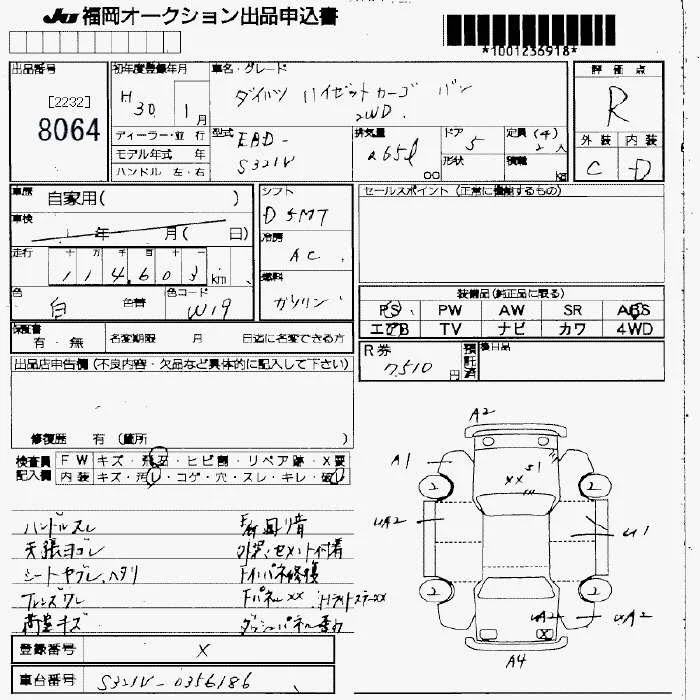 JU 福岡オークション出品申込書
*1001236918*
出品番号
[2232]
8064
初年度登録年月
H 30 1月
ディーラー・並 行
モデル年式 年
ハンドル 左・右
車名・グレード
ダイハツ ハイゼットカーゴ バン
2WD
型式
EBD-
S321V
排気量
660
ドア
5
形状
定員(4)
2人
積載
kg
評価点
R
外装 内装
C D
車歴 自家用( )
車検
年 月( 日)
走行
十 万 千 百 十 一
114,603 km
色 白 色替
色コード W19
シフト
D 5MT
冷房
AC
燃料
ガソリン
セールスポイント (正常に機能するもの)
装備品(純正品に限る)
PS PW AW SR ABS
エアB TV ナビ カワ 4WD
保証書
有・無
名変期限 月 日迄に名変できる方
R券
7,510円
預託済
後日品
出品店申告欄 (不良内容・欠品など具体的に記入して下さい)
修復歴 有 (箇所 )
検査員記入欄
FW キズ・飛石・ヒビ割・リペア跡・X要
内装 キズ・汚レ・コゲ・穴・スレ・キレ・破レ
ハンドルスレ
天張ヨゴレ 外装セメント付着
シートヤブレ、ヘタリ
荷室キズ
登録番号 X
車台番号 S321V-0356186
A2
A1
S1
XX
2 2
UA2 U1
2 2
UA2 UA2
X
A4